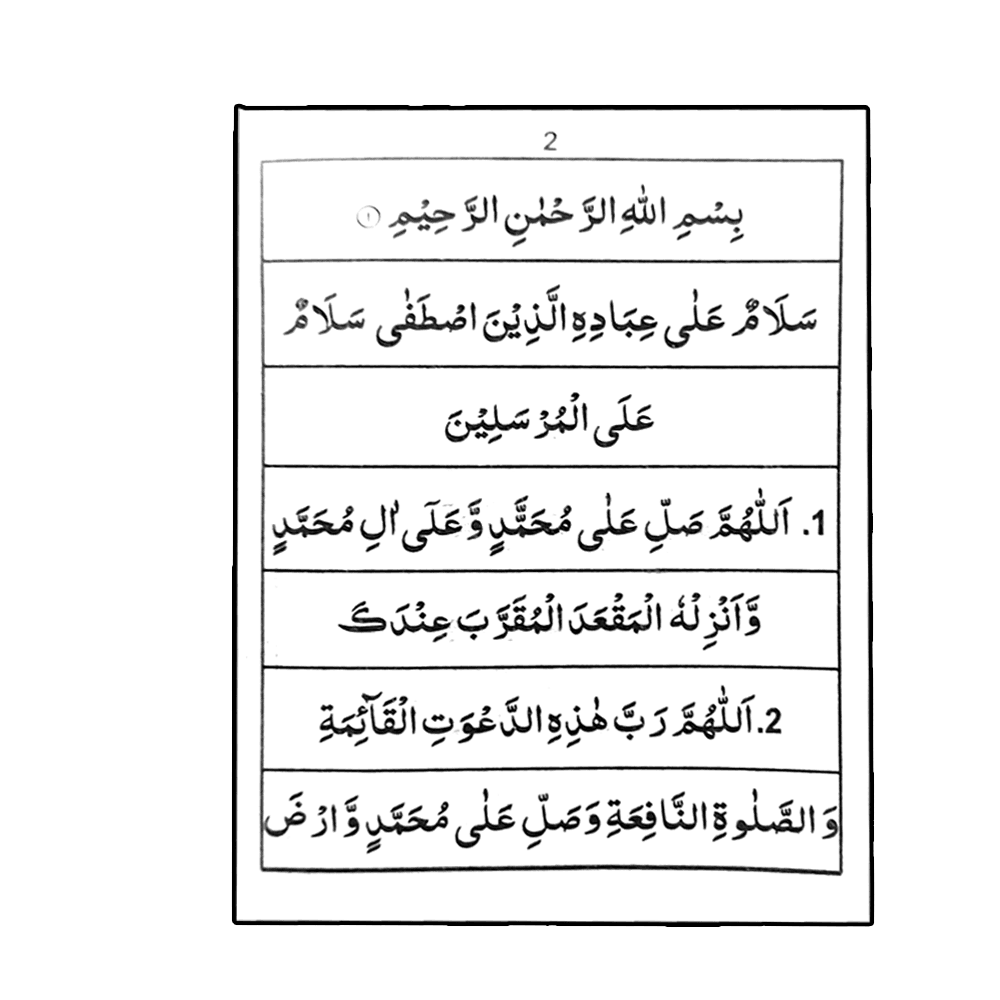 2
بِسْمِ اللّٰهِ الرَّحْمٰنِ الرَّحِيْمِ ۝۱
سَلَامٌ عَلٰى عِبَادِهِ الَّذِيْنَ اصْطَفٰى سَلَامٌ
عَلَى الْمُرْسَلِيْنَ
1. اَللّٰهُمَّ صَلِّ عَلٰى مُحَمَّدٍ وَّعَلٰٓى اٰلِ مُحَمَّدٍ
وَّاَنْزِلْهُ الْمَقْعَدَ الْمُقَرَّبَ عِنْدَكَ
2. اَللّٰهُمَّ رَبَّ هٰذِهِ الدَّعْوَتِ الْقَآئِمَةِ
وَالصَّلٰوةِ النَّافِعَةِ وَصَلِّ عَلٰى مُحَمَّدٍ وَّارْضَ